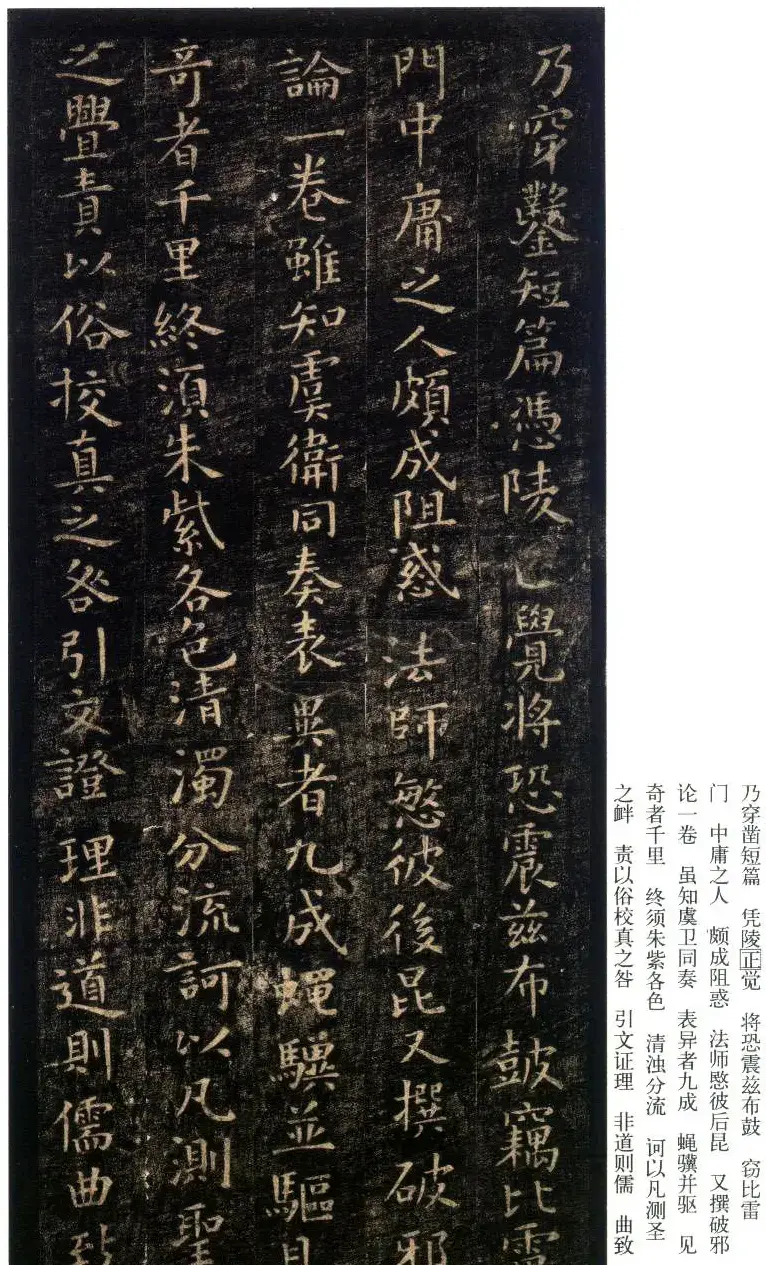 乃穿鑿短篇憑陵覺將恐震茲布皷竊比雷
門中庸之人頗成阻惑法師愍彼後昆又撰破邪
論一卷雖知虞衛同奏表異者九成蠅驥並驅見
奇者千里終須朱紫各色清濁分流訶以凡測聖
之舋責以俗挍真之咎引文證理非道則儒曲致
乃穿凿短篇 凭陵正觉 将恐震兹布鼓 窃比雷
门 中庸之人 颇成阻惑 法师愍彼后昆 又撰破邪
论一卷 虽知虞卫同奏 表异者九成 蝇骥并驱 见
奇者千里 终须朱紫各色 清浊分流 诃以凡测圣
之衅 责以俗校真之咎 引文证理 非道则儒 曲致